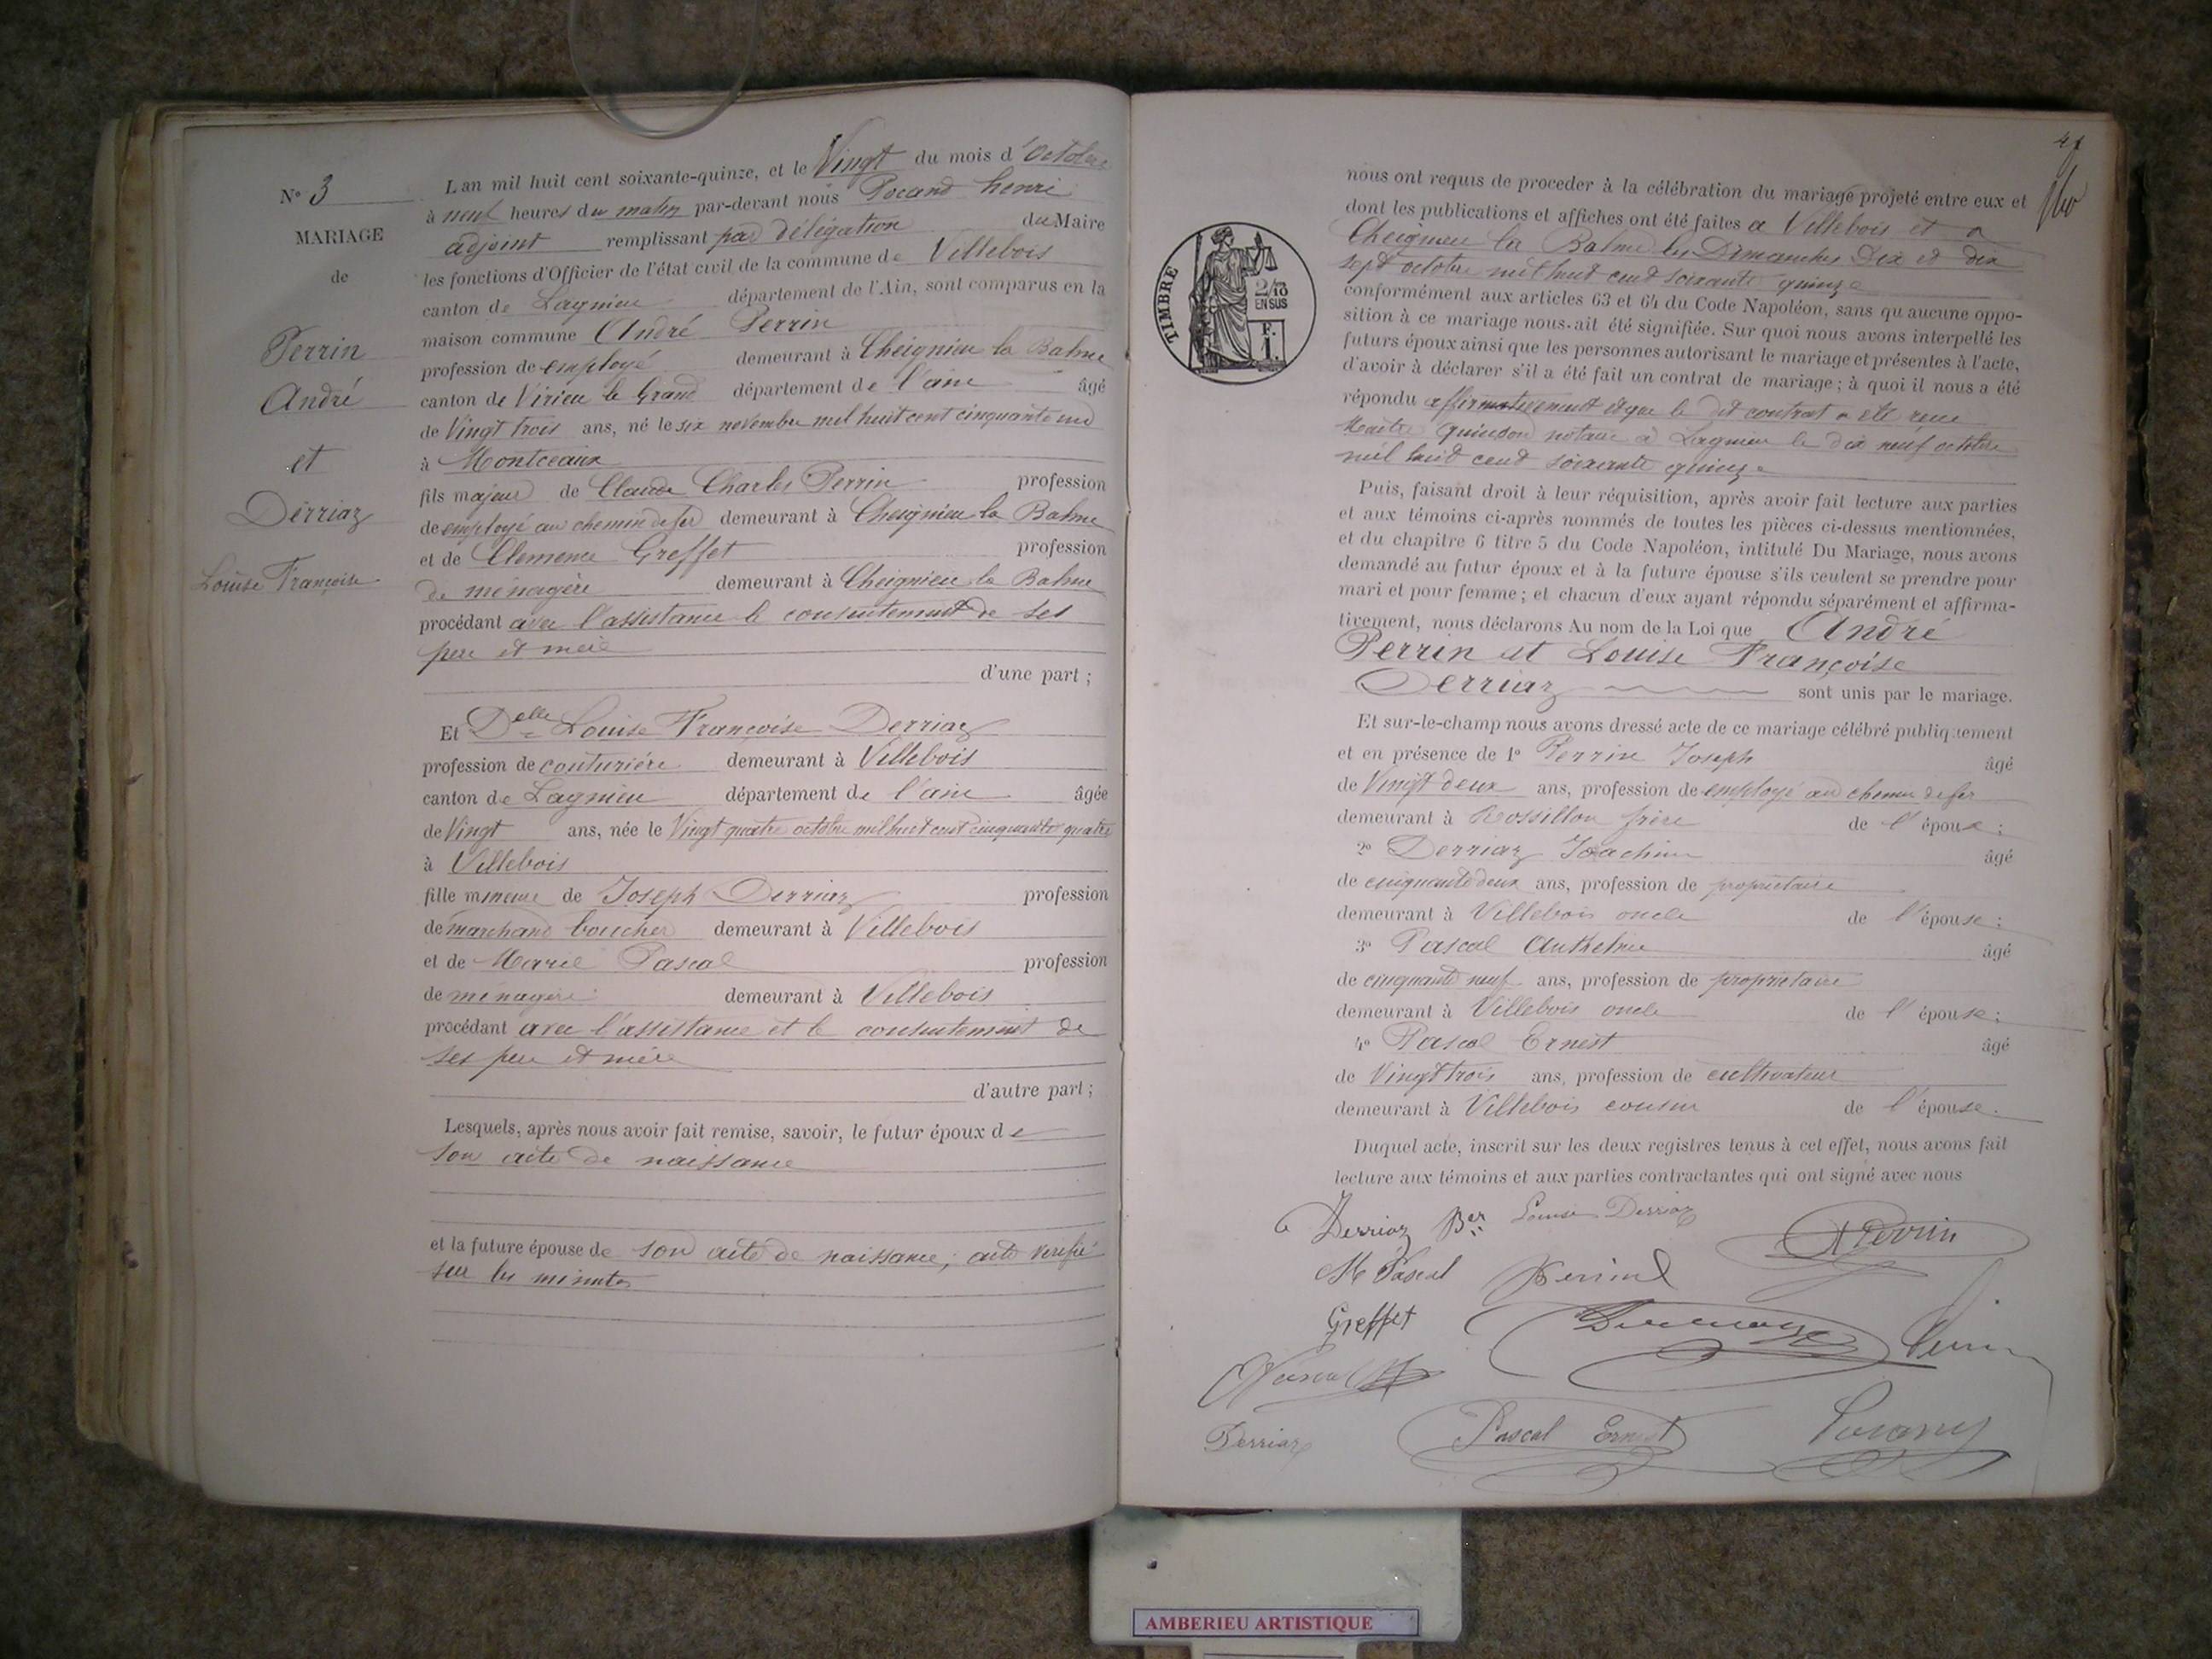 N° 3
MARIAGE
de
Perrin
André
et
Derriaz
Louise Françoise
L'an mil huit cent soixante-quinze, et le Vingt du mois d'Octobre
à neuf heures du matin par-devant nous Pocand henri
adjoint remplissant par délégation du Maire
les fonctions d'Officier de l'état civil de la commune de Villebois
canton de Lagnieu département de l'Ain, sont comparus en la
maison commune André Perrin
profession de employé demeurant à Cheignieu la Balme
canton de Virieu le Grand département de l'ain âgé
de Vingt trois ans, né le six novembre mil huit cent cinquante un
à Montceaux
fils majeur de Claude Charles Perrin profession
de employé au chemin de fer demeurant à Cheignieu la Balme
et de Clemence Greffet profession
de ménagère demeurant à Cheignieu la Balme
procédant avec l'assistance le consentement de ses
pere et mère
d'une part ;
Et Delle Louise Françoise Derriaz
profession de couturière demeurant à Villebois
canton de Lagnieu département de l'ain âgée
de Vingt ans, née le Vingt quatre octobre mil huit cent cinquante quatre
à Villebois
fille mineure de Joseph Derriaz profession
de marchand boucher demeurant à Villebois
et de Marie Pascal profession
de ménagère demeurant à Villebois
procédant avec l'assistance et le consentement de
ses pere et mère
d'autre part ;
Lesquels, après nous avoir fait remise, savoir, le futur époux de
son acte de naissance
et la future épouse de son acte de naissance, acte verifié
sur les minutes
nous ont requis de proceder à la célébration du mariage projeté entre eux et
dont les publications et affiches ont été faites a Villebois et a
Cheignieu la Balme les Dimanches Dix et dix
sept octobre mil huit cent soixante quinze
conformément aux articles 63 et 64 du Code Napoléon, sans qu'aucune oppo-
sition à ce mariage nous ait été signifiée. Sur quoi nous avons interpellé les
futurs époux ainsi que les personnes autorisant le mariage et présentes à l'acte,
d'avoir à déclarer s'il a été fait un contrat de mariage ; à quoi il nous a été
répondu affirmativement et que le dit contrat a été recu
Maitre Quinson notaire a Lagnieu le dix neuf octobre
mil huit cent soixante quinze
Puis, faisant droit à leur réquisition, après avoir fait lecture aux parties
et aux témoins ci-après nommés de toutes les pièces ci-dessus mentionnées,
et du chapitre 6 titre 5 du Code Napoléon, intitulé Du Mariage, nous avons
demandé au futur époux et à la future épouse s'ils veulent se prendre pour
mari et pour femme ; et chacun d'eux ayant répondu séparément et affirma-
tivement, nous déclarons Au nom de la Loi que André
Perrin et Louise Françoise
Derriaz sont unis par le mariage.
Et sur-le-champ nous avons dressé acte de ce mariage célébré publiquement
et en présence de 1° Perrin Joseph âgé
de Vingt deux ans, profession de employé au chemin de fer
demeurant à Rossillon frère de l'époux ;
2° Derriaz Joachim âgé
de cinquante deux ans, profession de propriétaire
demeurant à Villebois oncle de l'épouse ;
3° Pascal Anthelme âgé
de cinquante neuf ans, profession de propriétaire
demeurant à Villebois oncle de l'épouse ;
4° Pascal Ernest âgé
de Vingt trois ans, profession de cultivateur
demeurant à Villebois cousin de l'épouse.
Duquel acte, inscrit sur les deux registres tenus à cet effet, nous avons fait
lecture aux témoins et aux parties contractantes qui ont signé avec nous
Derriaz Ber Louise Derriaz A Perrin
M Pascal Perrin
Greffet
Derriaz Pascal Ernest
TIMBRE
2/10
EN SUS
AMBERIEU ARTISTIQUE